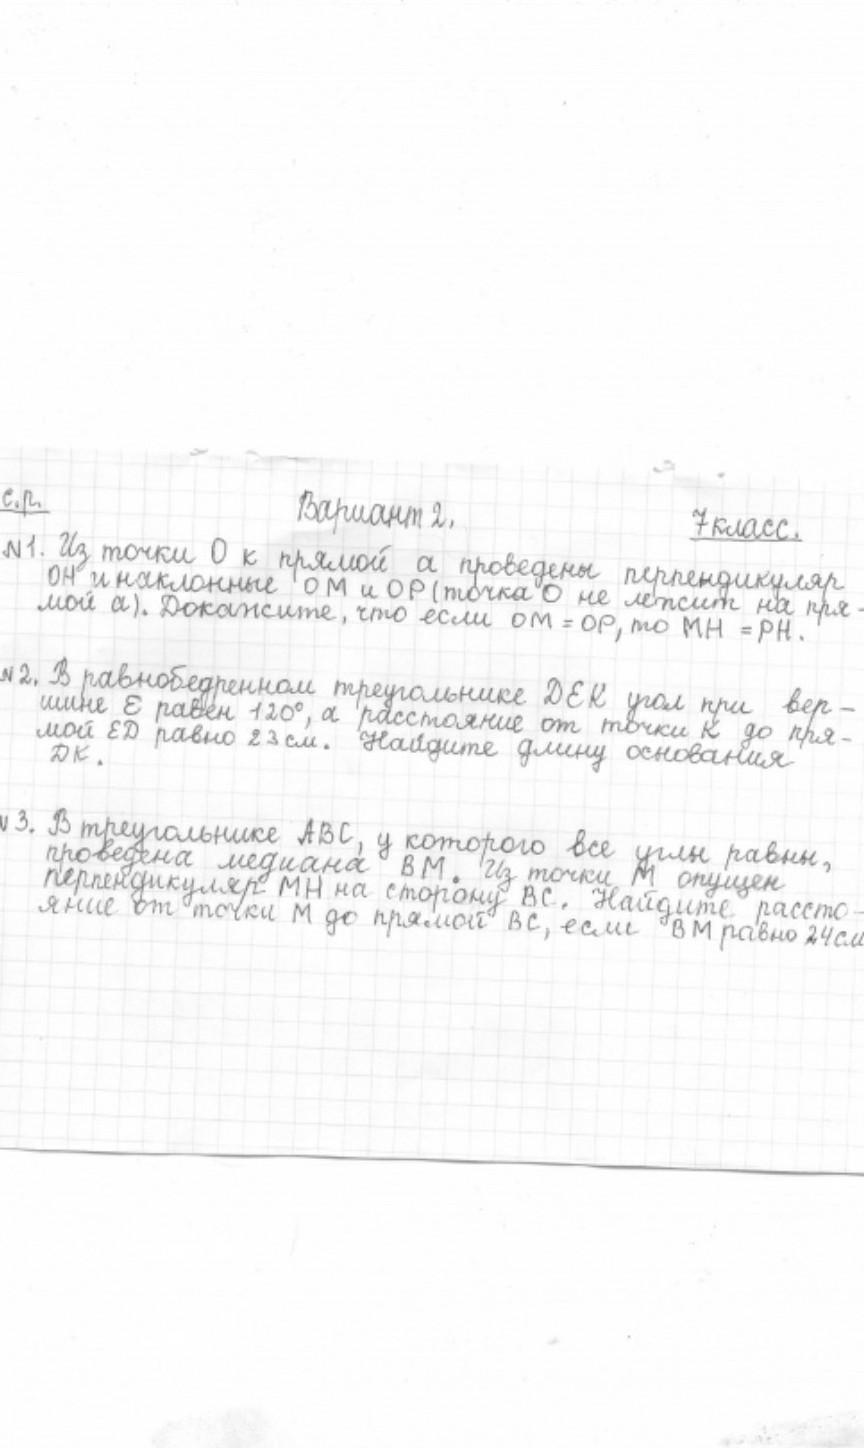 с.р.
Вариант 2.
7 класс.
№1. Из точки О к прямой а проведены перпендикуляр
ОН и наклонные ОМ и ОР (точка О не лежит на пря-
мой а). Докажите, что если ОМ = ОР, то МН = РН.
№2. В равнобедренном треугольнике DEK угол при вер-
шине E равен 120°, а расстояние от точки K до пря-
мой ED равно 23 см. Найдите длину основания
DK.
№3. В треугольнике ABC, у которого все углы равны,
проведена медиана BM. Из точки M опущен
перпендикуляр MH на сторону BC. Найдите рассто-
яние от точки M до прямой BC, если BM равно 24 см